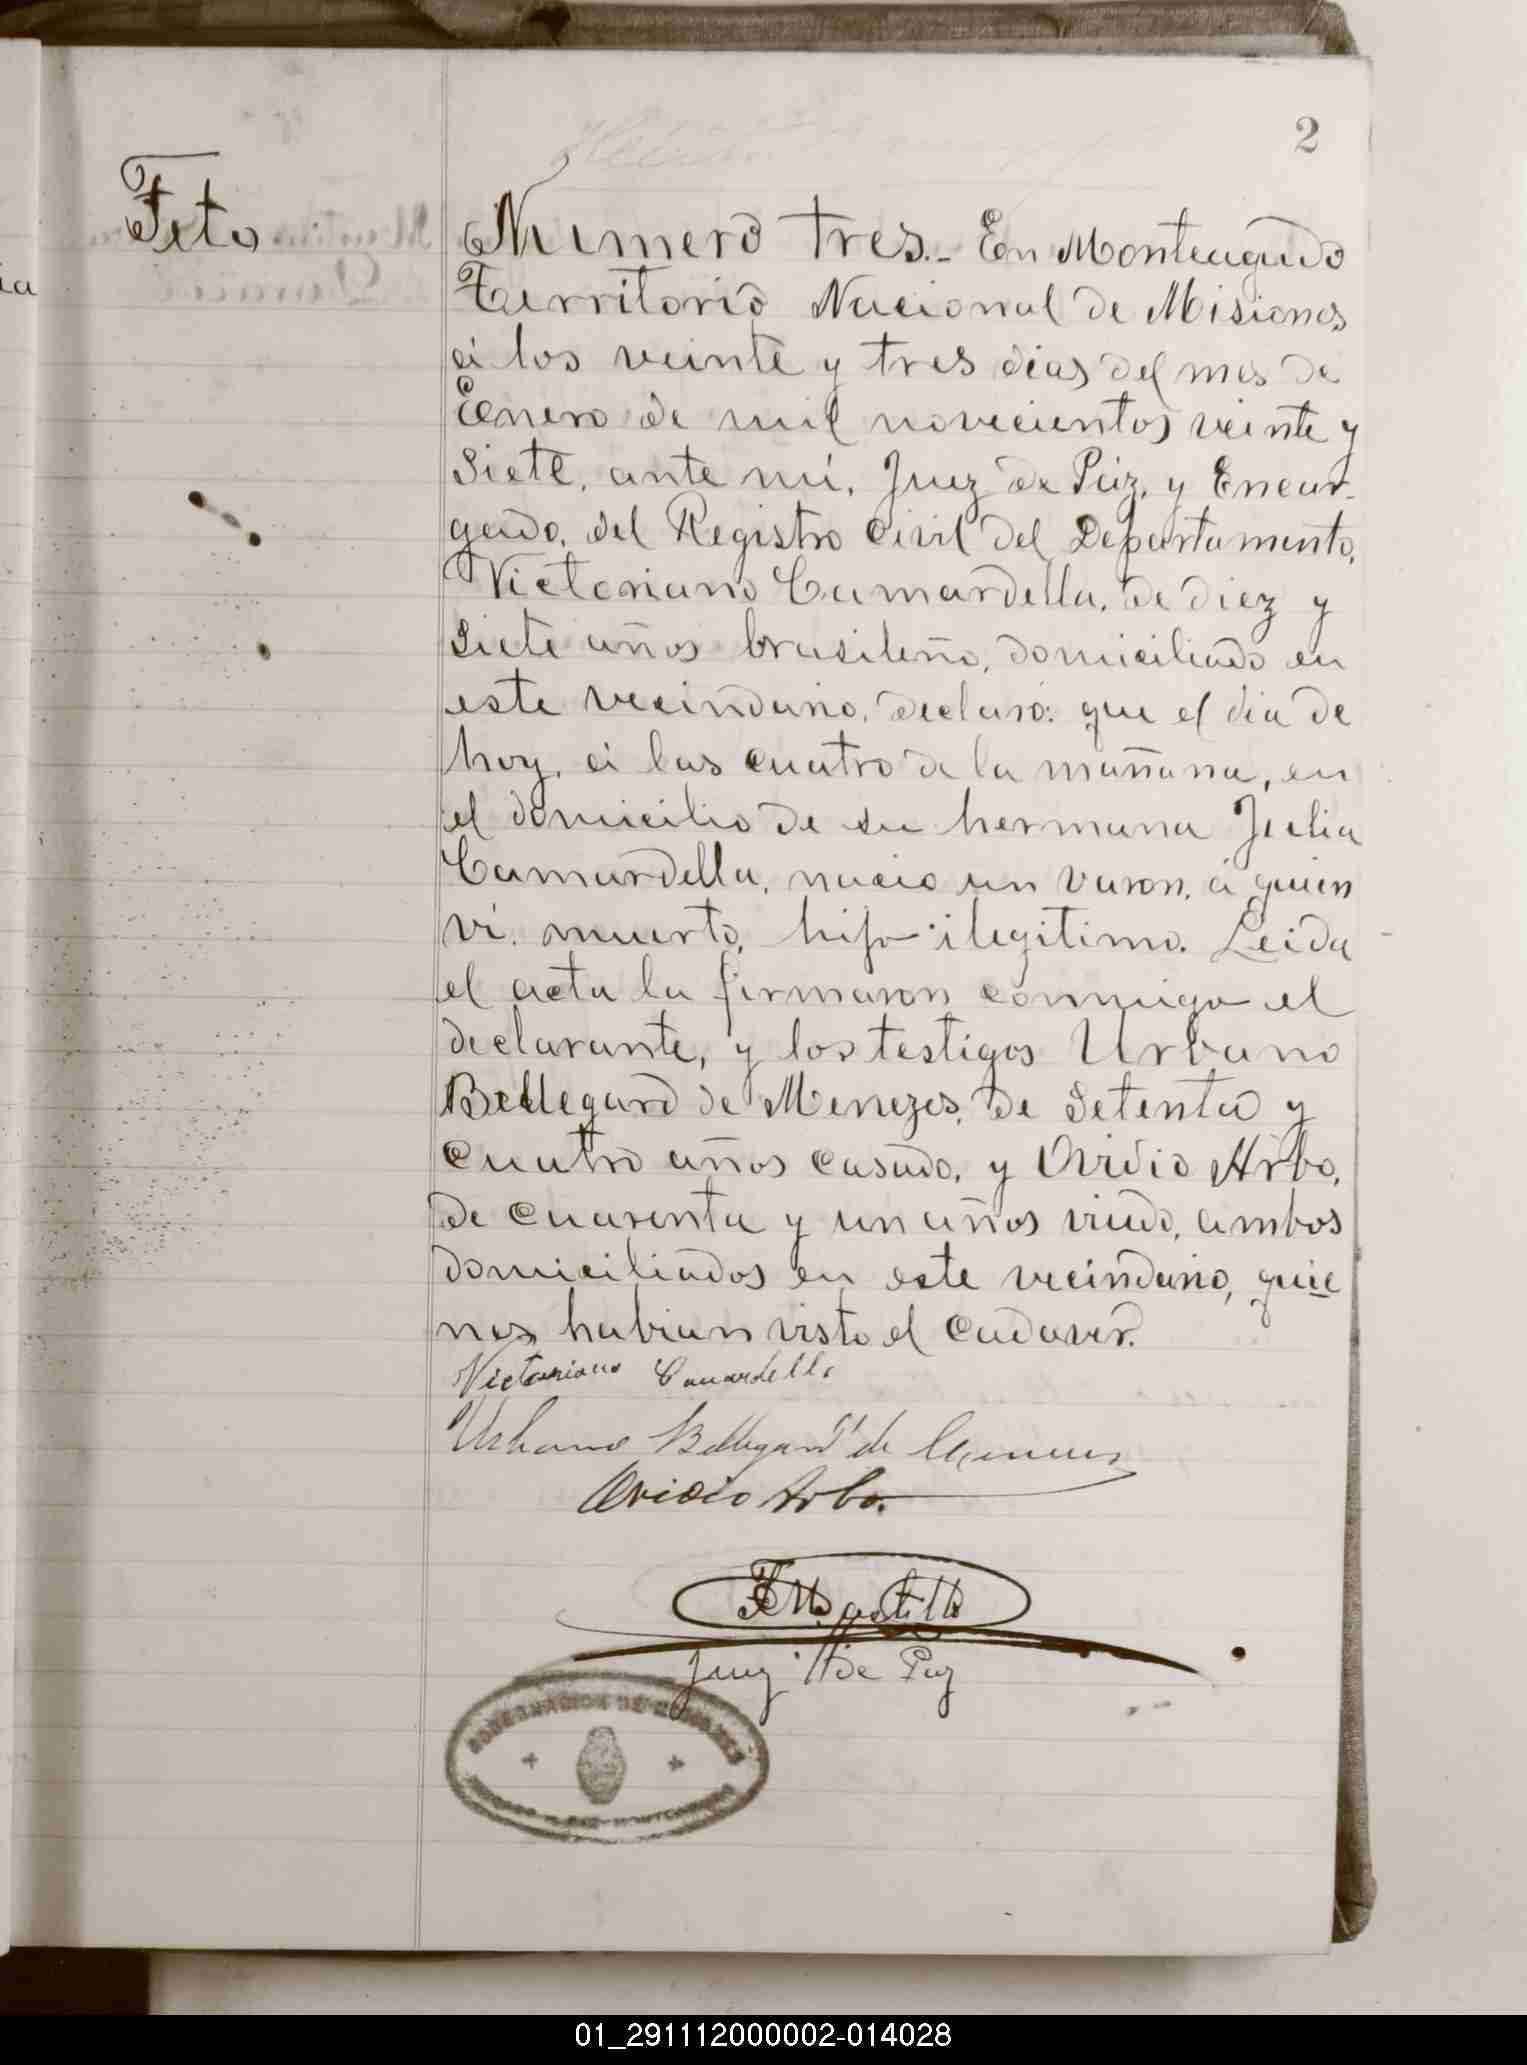 2
Feto
Numero tres.- En Monteagudo
Territorio Nacional de Misiones
á los veinte y tres dias del mes de
Enero de mil novecientos veinte y
siete, ante mí, Juez de Paz, y Encar-
gado, del Registro Civil del Departamento,
Victoriano Camardella, de diez y
siete años brasileño, domiciliado en
este vecindario, declaró: que el dia de
hoy, á las cuatro de la mañana, en
el domicilio de su hermana Julia
Camardella, nacio un varon, á quien
ví muerto, hijo ilegitimo. Leida
el acta la firmaron conmigo el
declarante, y los testigos Urbano
Bellegard de Menezes, de setenta y
cuatro años casado, y Ovidio Arbo,
de cuarenta y un años viudo, ambos
domiciliados en este vecindario, quie
nes habian visto el cadaver.
Victoriano Camardella
Urbano Bellegard de Menezes
Ovidio Arbo.
Juez de Paz
GOBERNACION DE MISIONES
JUZGADO DE PAZ-MONTEAGUDO
01_291112000002-014028